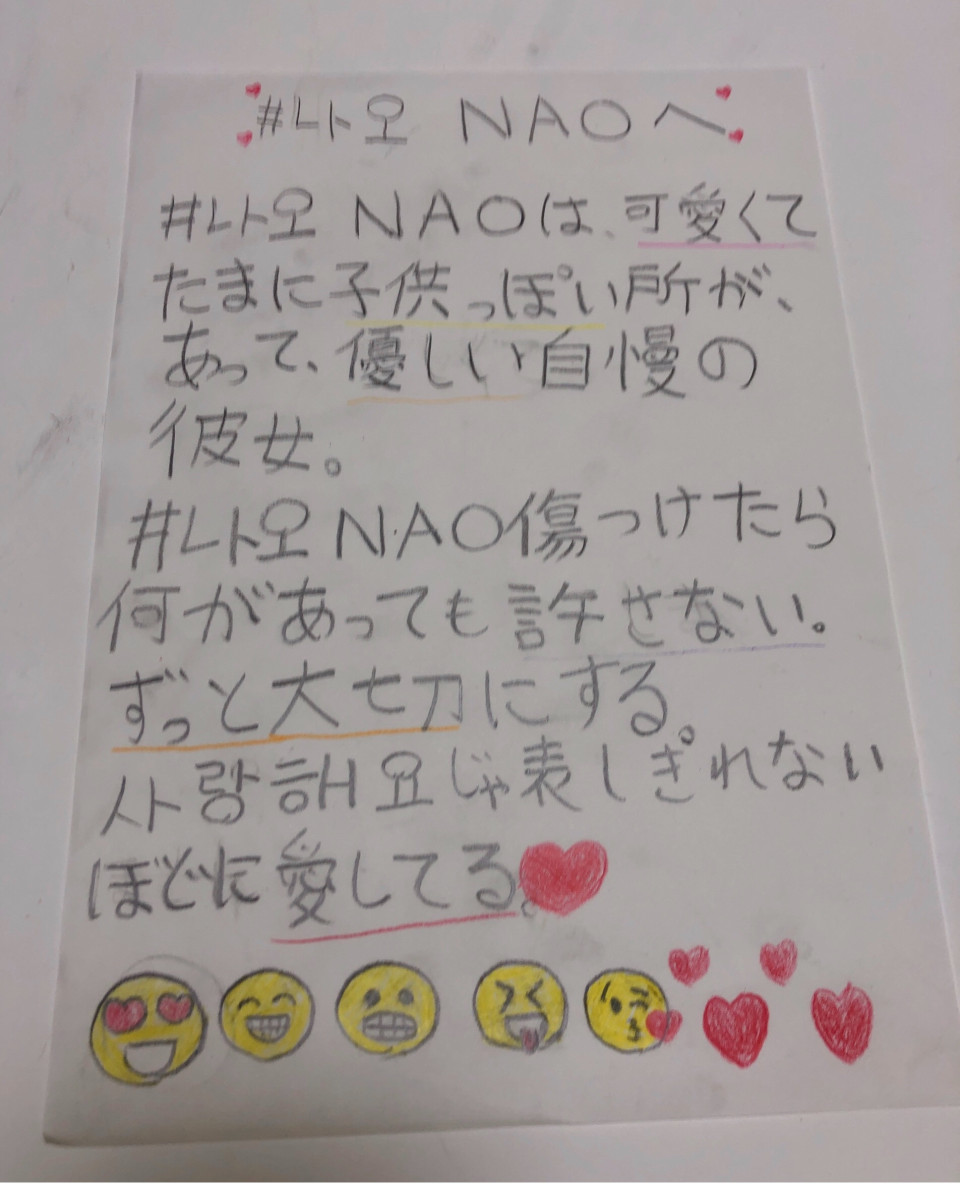 #나오 NAOへ
#나오 NAOは、可愛くて
たまに子供っぽい所が、
あって、優しい自慢の
彼女。
#나오 NAO傷つけたら
何があっても許せない。
ずっと大切にする。
사랑해요じゃ表しきれない
ほどに愛してる。